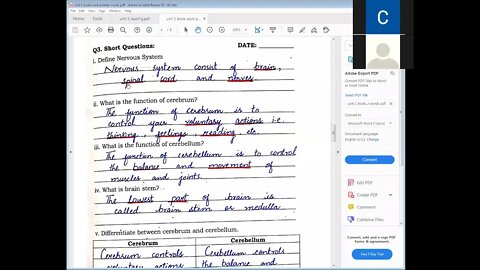 unit 1 reading.pdf
unit 1 book work.p...
Q3. Short Questions:
DATE:
i. Define Nervous System
Nervous system consist of brain,
spinal cord and nerves.
ii. What is the function of cerebrum?
The function of cerebrum is to
control your voluntary actions i.e.
thinking, feelings, reading etc.
iii. What is the function of cerebellum?
The function of cerebellum is to control
the balance and movement of
muscles and joints.
iv. What is brain stem?
The lowest part of brain is
called brain stem or medulla.
v. Differentiate between cerebrum and cerebellum.
Cerebrum
Cerebellum
Cerebrum controls
Cerebellum controls
voluntary actions
the balance and
C
Adobe Export PDF
Convert PDF Files to Word
or Excel Online
Select PDF File
unit 1 book work.pdf
Convert to
Microsoft Word (*.docx)
Document Language:
English (U.S.) Change
Convert
Edit PDF
Create PDF
Comment
Combine Files
Convert, edit and e-sign PDF
forms & agreements